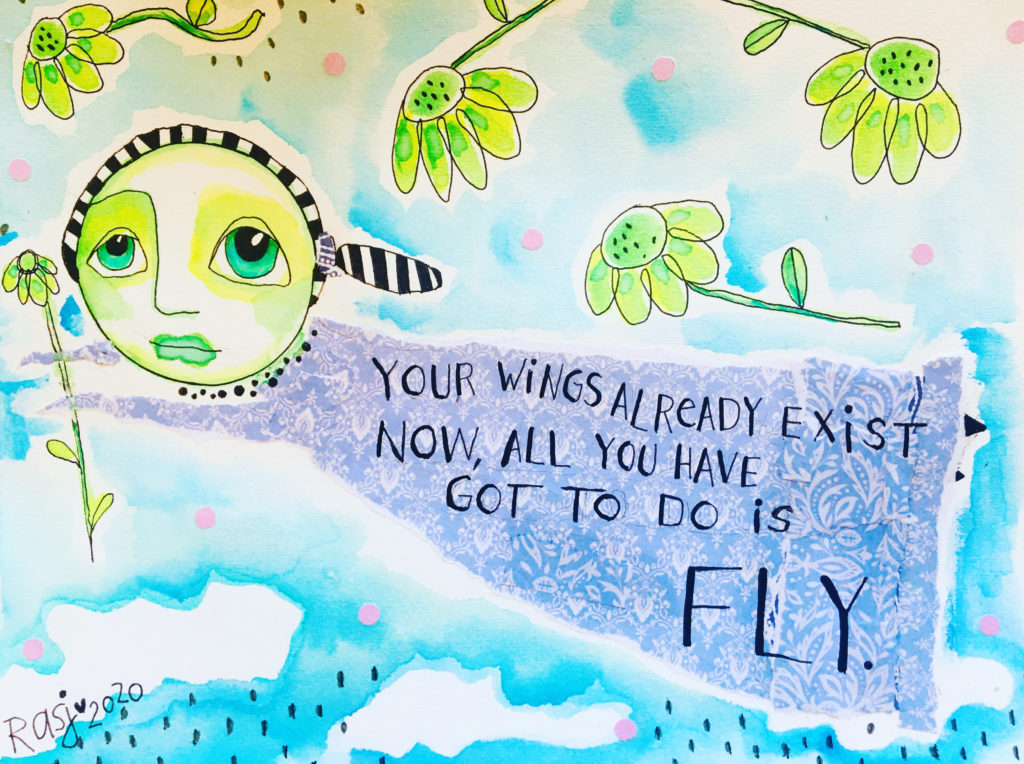 YOUR WiNGS ALREADY EXiST
NOW, ALL YOU HAVE
GOT TO DO is
FLY.
Rasj 2020